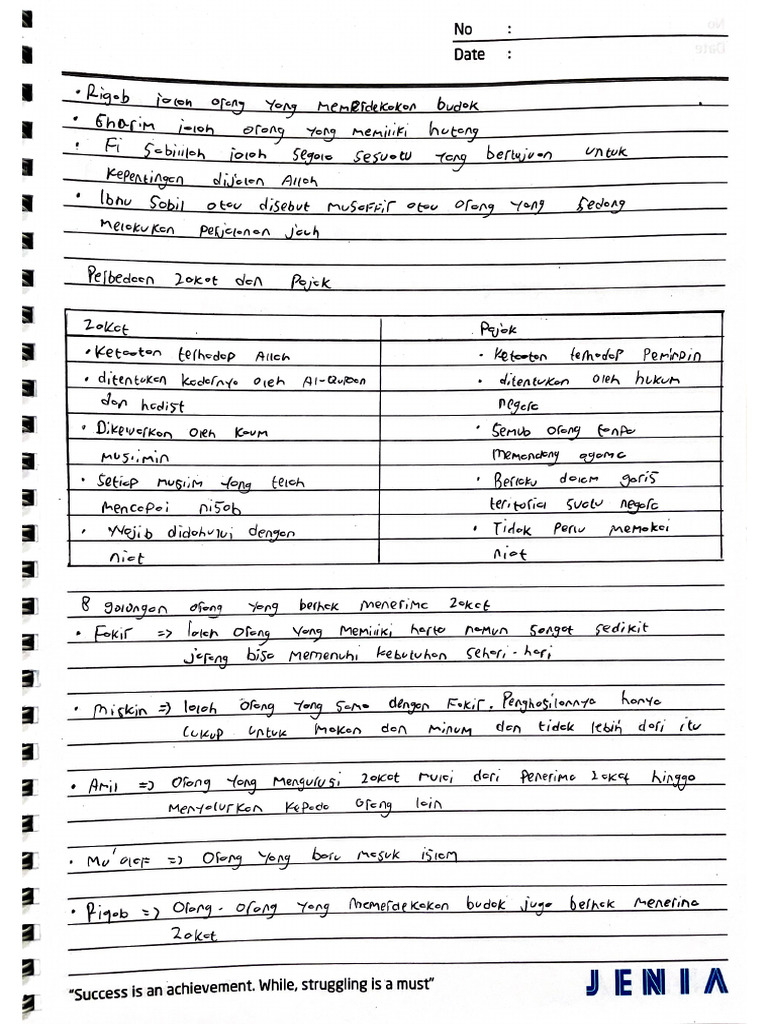 No :
Date :
• Riqob ialah orang yang memerdekakan budak
• Gharim ialah orang yang memiliki hutang
• Fi sabilillah ialah segala sesuatu yang bertujuan untuk
kepentingan dijalan Allah
• Ibnu Sabil atau disebut musaffir atau orang yang sedang
melakukan perjalanan jauh
Perbedaan zakat dan Pajak
Zakat
• Ketaatan terhadap Allah
• ditentukan kadarnya oleh Al-Quraan
dan hadist
• Dikewarkan oleh kaum
muslimin
• Setiap muslim yang telah
mencapai nisab
• Wajib didahului dengan
niat
Pajak
• Ketaatan terhadap Pemimpin
• ditentukan oleh hukum
negara
• Semua orang tanpa
memandang agama
• Berlaku dalam garis
teritorial suatu negara
• Tidak perlu memakai
niat
8 golongan orang yang berhak menerima zakat
• Fakir => Ialah orang yang memiliki harta namun sangat sedikit
jarang bisa memenuhi kebutuhan sehari-hari
• Miskin => Ialah orang yang sama dengan Fakir. Penghasilannya hanya
cukup untuk makan dan minum dan tidak lebih dari itu
• Amil => Orang yang mengurusi zakat mulai dari penerima zakat hingga
menyalurkan kepada orang lain
• Mu'alaf => Orang yang baru masuk islam
• Riqob => Orang-orang yang memerdekakan budak juga berhak menerima
zakat
"Success is an achievement. While, struggling is a must"
JENIA